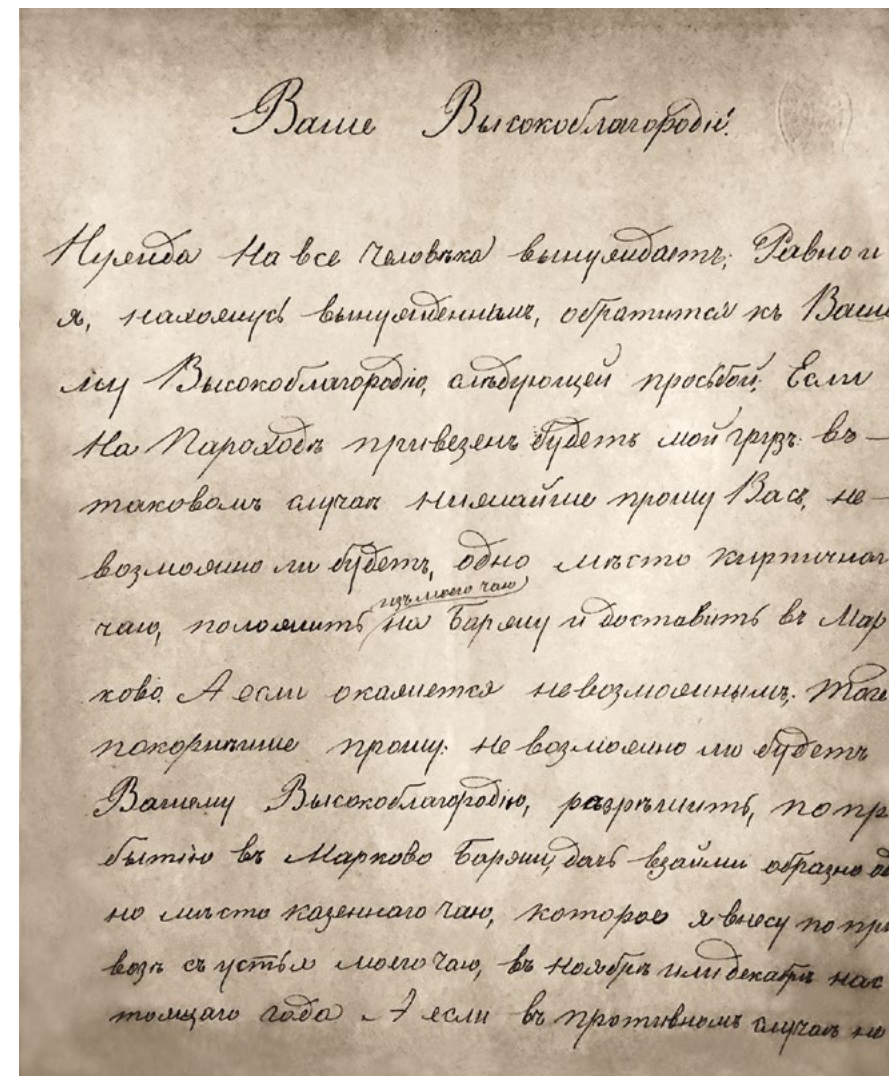 Ваше Высокоблагородіе!
Нужда на все человѣка вынуждаетъ; Равно и
я, нахожусь вынужденнымъ, обратится къ Ваше
му Высокоблагородію, слѣдующей просьбой; Если
на Пароходѣ привезенъ будетъ мой грузъ: въ —
таковомъ случаѣ нижайше прошу Васъ, не —
возможно ли будетъ, одно мѣсто кирпичнаг
изъ моего чаю
чаю, положить на Баржу и доставить въ Мар
ково. А если окажется невозможнымъ: то
покорнѣише прошу: не возможно ли будетъ
Вашему Высокоблагородію, разрѣшить, по пр
бытію въ Марково Баржи, дать взаймы образно од
но мѣсто казеннаго чаю, которое я внесу по при
возѣ съ устья моего чаю, въ ноябрѣ или декабрѣ нас
тоящаго года А если въ противномъ случаѣ не